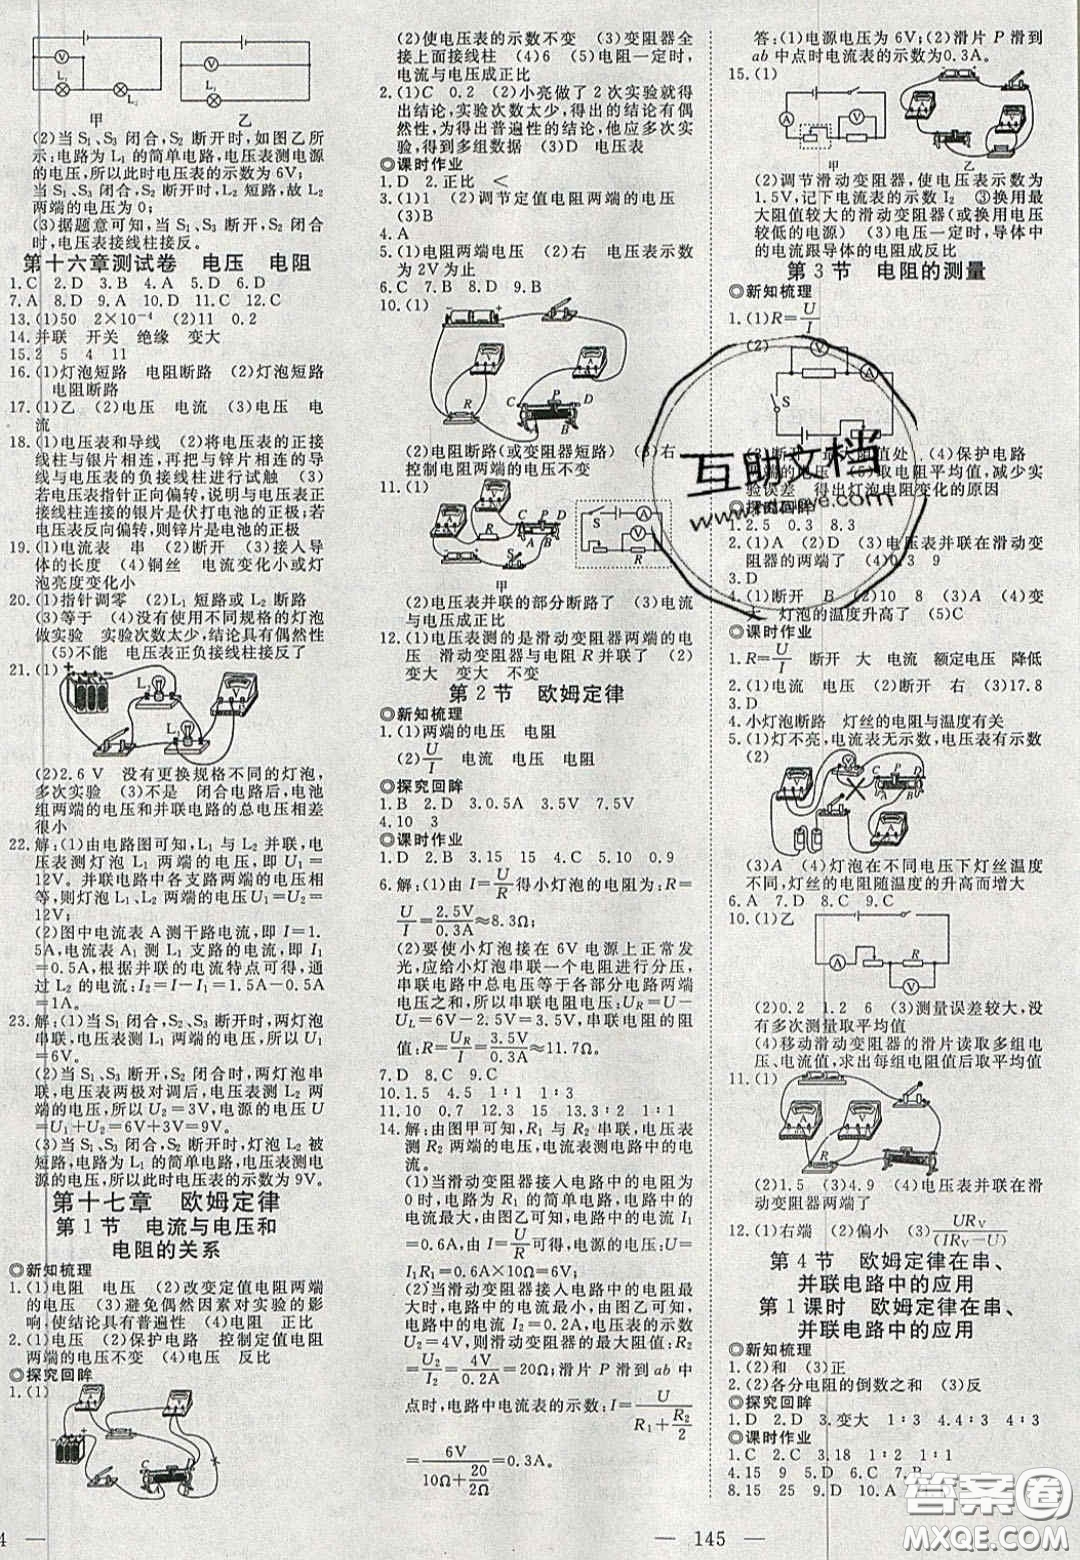 V
L₁
L₂
甲
V
L₁
乙
(2)当 S₁、S₃ 闭合,S₂ 断开时,如图乙所
示:电路为 L₁ 的简单电路,电压表测电源
的电压,所以此时电压表的示数为 6V;
当 S₁、S₃ 闭合,S₂ 断开时,L₂ 短路,故 L₂
两端的电压为 0;
(3)据题意可知,当 S₁、S₂ 断开,S₃ 闭合
时,电压表接线柱接反。
第十六章测试卷 电压 电阻
1.C 2.D 3.B 4.A 5.D 6.D
7.A 8.D 9.A 10.D 11.C 12.C
13.(1)50 2×10⁻⁴ (2)11 0.2
14.并联 开关 绝缘 变大
15.2 5 4 11
16.(1)灯泡短路 电阻断路 (2)灯泡短路
电阻断路
17.(1)乙 (2)电压 电流 (3)电压 电
流
18.(1)电压表和导线 (2)将电压表的正接
线柱与银片相连,再把与锌片相连的导线
与电压表的负接线柱进行试触 (3)
若电压表指针正向偏转,说明与电压表正
接线柱连接的银片是伏打电池的正极;若
电压表反向偏转,则锌片是电池的正极
19.(1)电流表 串 (2)断开 (3)接入导
体的长度 (4)铜丝 电流变化小或灯
泡亮度变化小
20.(1)指针调零 (2)L₁ 短路或 L₂ 断路
(3)等于 (4)没有使用不同规格的灯泡
做实验 实验次数太少,结论具有偶然性
(5)不能 电压表正负接线柱接反了
21.(1)
L₁
L₂
(2)2.6 V 没有更换规格不同的灯泡,
多次实验 (3)不是 闭合电路后,电池
组两端的电压和并联电路的总电压相差
很小
22.解:(1)由电路图可知,L₁、L₂ 并联,电
压表测灯泡 L₁ 两端的电压,即 U₁=
12V。并联电路中各支路两端的电压相
等,则灯泡 L₂ 两端的电压 U₂=U₁=
12V;
(2)图中电流表 A 测干路电流,即 I=1.
5A,电流表 A₁ 测 L₁ 支路的电流,即 I₁
=0.5A,根据并联的电流特点可得,通过
L₂ 的电流:I₂=I−I₁=1.5A−0.5A
=1A。
23.解:(1)当 S₁ 闭合,S₂、S₃ 断开时,两灯泡
串联,电压表测 L₁ 两端的电压,所以 U₁
=6V。
(2)当 S₁、S₃ 断开,S₂ 闭合时,两灯泡串
联,电压表两极对调后,电压表测 L₂ 两
端的电压,所以 U₂=3V,电源的电压 U
=U₁+U₂=6V+3V=9V。
(3)当 S₁、S₃ 闭合,S₂ 断开时,灯泡 L₂ 被
短路,电路为 L₁ 的简单电路,电压表测电
源的电压,所以此时电压表的示数为 9V。
第十七章 欧姆定律
第 1 节 电流与电压和
电阻的关系
◎新知梳理
1.(1)电阻 电压 (2)改变定值电阻两端
的电压 (3)避免偶然因素对实验的影
响,使结论具有普遍性 (4)电阻 正比
2.(1)电压 (2)保护电路 控制定值电阻
两端的电压不变 (4)电压 反比
◎探究回眸
1.(1)
(2)使电压表的示数不变 (3)变阻器全
接上面接线柱 (4)6 (5)电阻一定时,
电流与电压成正比
2.(1)C 0.2 (2)小亮做了 2 次实验就得
出结论,实验次数太少,得出的结论有偶
然性,为得到普遍性的结论,他应多次实
验,得到多组数据 (3)D 电压表
◎课时作业
1.D 2.正比 <
3.(1) (2)调节定值电阻两端的电压
(3)B
4.A
5.(1)电阻两端电压 (2)右 电压表示数
为 2V 为止
6.C 7.B 8.D 9.B
10.(1)
R
C P D
A B
(2)电阻断路(或变阻器短路) (3)右
控制电阻两端的电压不变
11.(1)
C P D
A B
S
甲
S A
V
R
(2)电压表并联的部分断路了 (3)电流
与电压成正比
12.(1)电压表测的是滑动变阻器两端的电
压 滑动变阻器与电阻 R 并联了 (2)
变大 变大 不变
第 2 节 欧姆定律
◎新知梳理
1.(1)两端的电压 电阻
(2)U/I 电流 电压 电阻
◎探究回眸
1.B 2.D 3.0.5A 3.5V 7.5V
4.10 3
◎课时作业
1.D 2.B 3.15 15 4.C 5.10 0.9
6.解:(1)由 I=U/R得小灯泡的电阻为:R=
U/I=2.5V/0.3A≈8.3Ω;
(2)要使小灯泡接在 6V 电源上正常发
光,应给小灯泡串联一个电阻进行分压,
串联电路中总电压等于各部分电路两端
电压之和,所以串联电阻电压:U_R=U−
U_L=6V−2.5V=3.5V,串联电阻的阻
值:R=U_R/I=3.5V/0.3A≈11.7Ω。
7.D 8.C 9.C
10.1.5 4.5 1∶1 1∶3
11.10 0.7 12.3 15 13.2∶1 1∶1
14.解:由图甲可知,R₁ 与 R₂ 串联,电压表
测 R₂ 两端的电压,电流表测电路中的电
流。
(1)当滑动变阻器接入电路中的电阻为
0 时,电路为 R₁ 的简单电路,电路中的
电流最大,由图乙可知,电路中的电流为
I₁=0.6A,此时电源的电压:U=
I₁R₁=0.6A×10Ω=6V;
(2)当滑动变阻器接入电路中的电阻最
大时,电路中的电流最小,由图乙可知,
电路中的电流 I₂=0.2A,电压表的示数
U₂=4V,则滑动变阻器的最大阻值:R₂
=U₂/I₂=4V/0.2A=20Ω;滑片 P 滑到 ab 中
点时,电路中电流表的示数:I=U/(R₁+R₂/2)
=6V/(10Ω+20/2Ω)=0.3A。
答:(1)电源电压为 6V;(2)滑片 P 滑到
ab 中点时电流表的示数为 0.3A。
15.(1)
A
V
甲
乙
(2)调节滑动变阻器,使电压表示数为
1.5V,记下电流表的示数 I₂ ③换用最
大阻值较大的滑动变阻器(或换用电压
较低的电源) (3)电压一定时,导体中
的电流跟导体的电阻成反比
第 3 节 电阻的测量
◎新知梳理
1.(1)R=U/I
(2)
V
A
S
值处 (4)保护电路
(5)取电阻平均值,减少实
验误差 得出灯泡电阻变化的原因
◎探究回眸
1.2.5 0.3 8.3
2.(1)A (2)D (3)电压表并联在滑动变
阻器的两端了 (4)0.3 9
3.D
4.(1)断开 B (2)10 8 (3)A (4)变
大 灯泡的温度升高了 (5)C
◎课时作业
1.R=U/I 断开 大 电流 额定电压 降低
2.(1)电流 电压 (2)断开 右 (3)17.8
3.D
4.小灯泡断路 灯丝的电阻与温度有关
5.(1)灯不亮,电流表无示数,电压表有示数
(2)
C P D
A B
(3)A (4)灯泡在不同电压下灯丝温度
不同,灯丝的电阻随温度的升高而增大
6.A 7.D 8.C 9.C
10.(1)乙
R
A
V
(2)0.2 1.2 6 (3)测量误差较大,没
有多次测量取平均值
(4)移动滑动变阻器的滑片读取多组电
压、电流值,求出每组电阻值后取平均值
11.(1)
(2)1.5 (3)4.9 (4)电压表并联在滑
动变阻器两端了
12.(1)右端 (2)偏小 (3)UR_V/(IR_V−U)
第 4 节 欧姆定律在串、
并联电路中的应用
第 1 课时 欧姆定律在串、
并联电路中的应用
◎新知梳理
1.(2)和 (3)正
2.(2)各分电阻的倒数之和 (3)反
◎探究回眸
1.D 2.D 3.变大 1∶3 4.4∶3 4∶3
◎课时作业
1.C 2.C 3.18 1∶2 1∶1
4.15 9 5.D 6.C 7.B
8.15 25 9.D 10.A
4 —
— 145 —
互助文档
答案圈
MXQE.COM